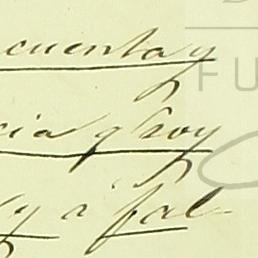 cuenta y
cia y hoy
y a fal-